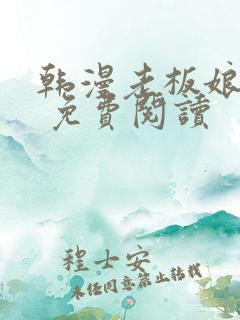 韩漫老板娘
免費閱讀
程士安
未经同意禁止转载